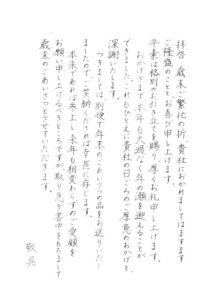 拝啓 歳末ご繁忙の折、貴社におかれましてはますます
ご隆盛のこととお喜び申し上げます。
平素は格別のお引立てを賜り、厚くお礼申し上げます。
おかげさまで本年も大過なく年の瀬を迎えることが
できました。これもひとえに貴社の日ごろのご厚意のおかげと、
深謝いたします。
つきましては、別便で年末のごあいさつの品をお送りいたし
ましたので、ご笑納くだされば幸甚に存じます。
本来であれば参上し本年も相変わらずのご愛顧を
お願い申し上げるべきところですが、取り急ぎ書中をもちまして
歳末のごあいさつとさせていただきます。
敬具